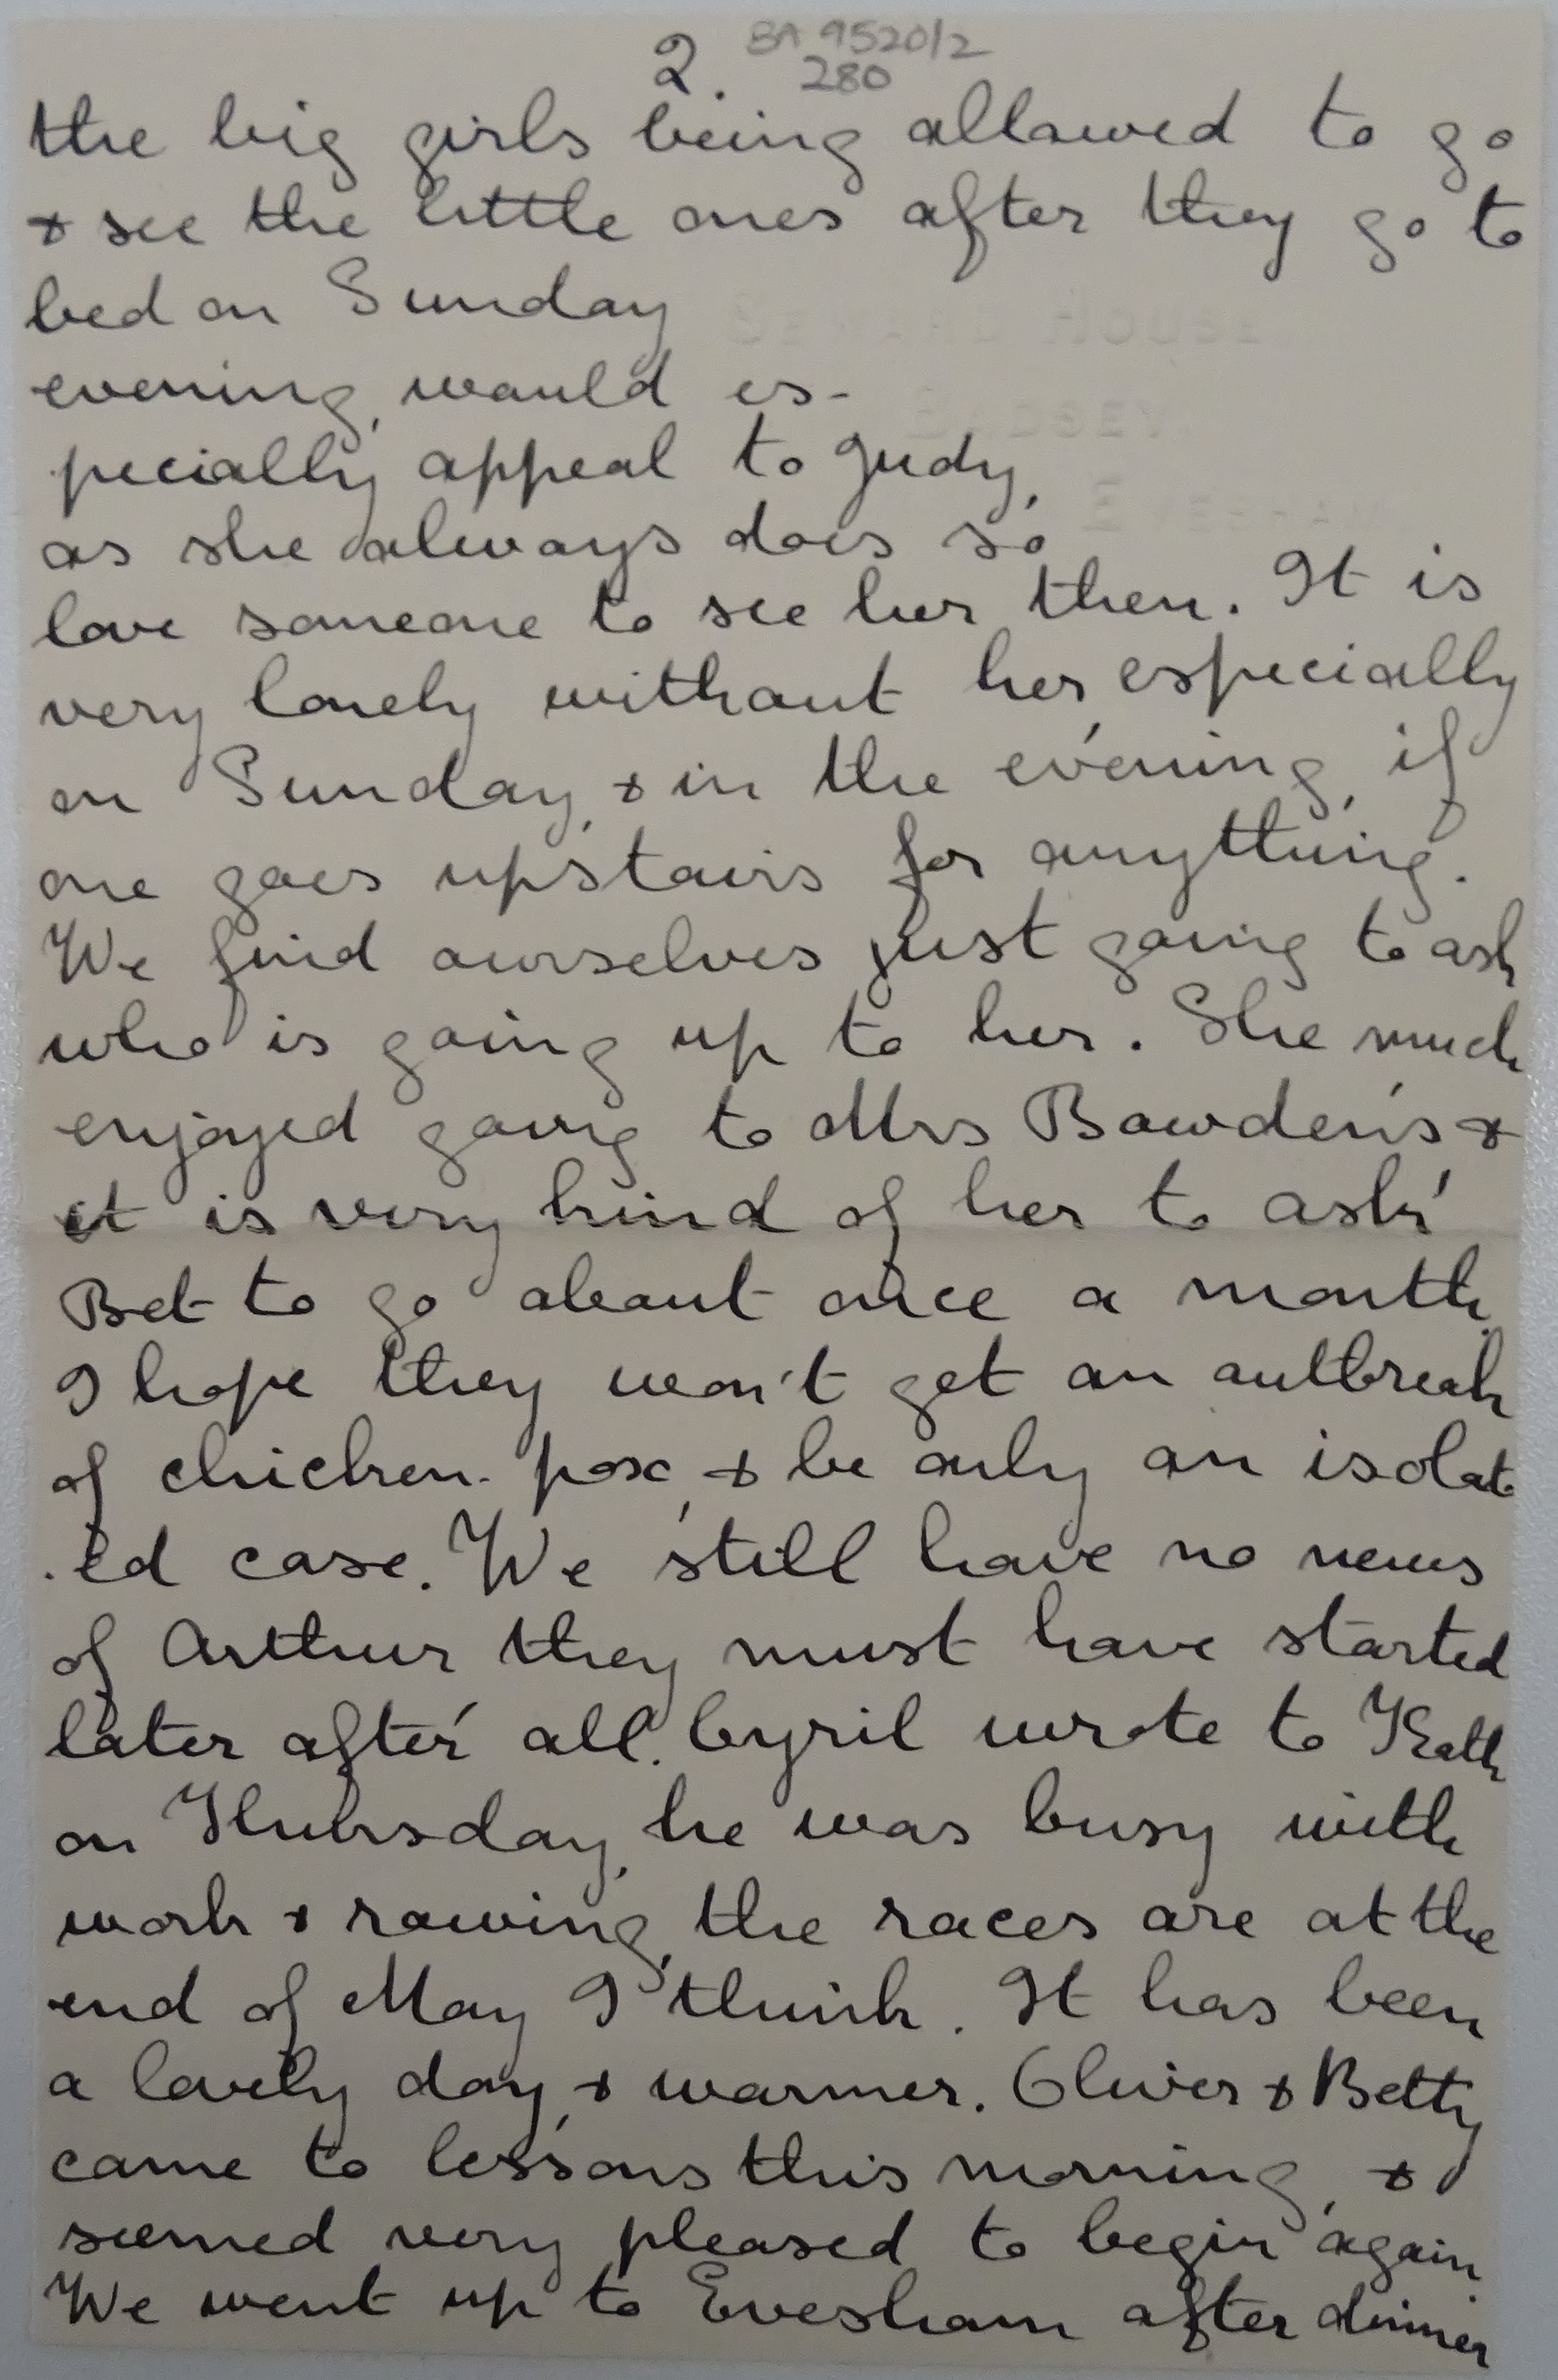 2. BA 9520/2
280
the big girls being allowed to go
& see the little ones after they go to
bed on Sunday
evening, would es-
pecially appeal to Judy,
as she always does so
love someone to see her then. It is
very lonely without her, especially
on Sunday, & in the evening, if
one goes upstairs for anything.
We find ourselves just going to ask
who is going up to her. She much
enjoyed going to Mrs Bowden's &
it is very kind of her to ask
Bet to go about once a month.
I hope they won't get an outbreak
of chicken-pox, & be only an isolat
-ed case. We still have no news
of Arthur they must have started
later after all. Cyril wrote to Kath
on Thursday, he was busy with
work & rowing, the races are at the
end of May I think. It has been
a lovely day, & warmer. Oliver & Betty
came to lessons this morning, &
seemed very pleased to begin again
We went up to Evesham after dinner